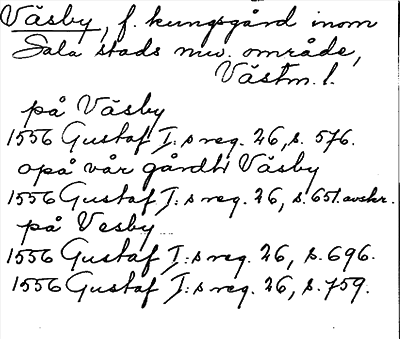 Väsby, f. kungsgård inom
Sala stads nuv. område,
Västm. l.
på Väsby
1556 Gustaf I:s reg. 26, s. 576.
opå vår gårdh Väsby
1556 Gustaf I:s reg. 26, s. 651. avskr.
på Vesby
1556 Gustaf I:s reg. 26, s. 696.
1556 Gustaf I:s reg. 26, s. 759.